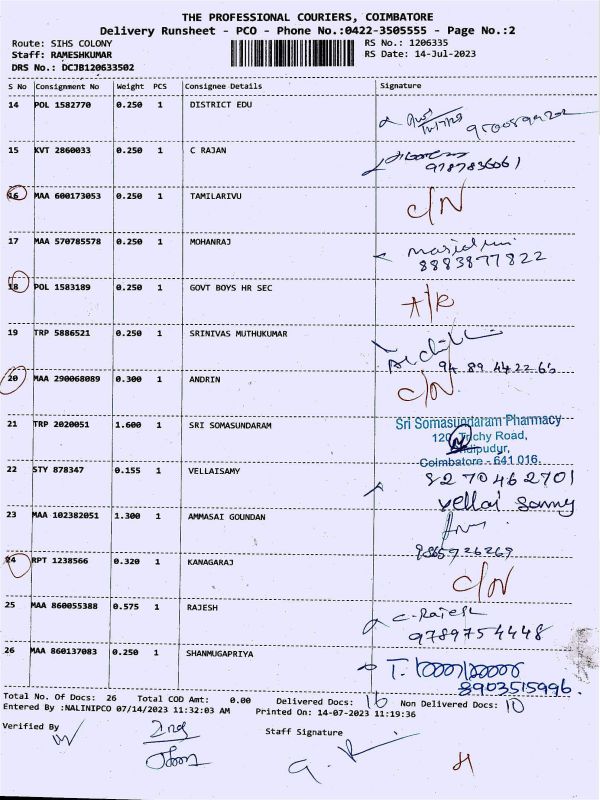 THE PROFESSIONAL COURIERS, COIMBATORE
Delivery Runsheet - PCO - Phone No.:0422-3505555 - Page No.:2
Route: SIHS COLONY RS No.: 1206335
Staff: RAMESHKUMAR RS Date: 14-Jul-2023
DRS No.: DCJB120633502
S No Consignment No Weight PCS Consignee Details Signature
14 POL 1582770 0.250 1 DISTRICT EDU
15 KVT 2860033 0.250 1 C RAJAN
9787836061
16 MAA 600173053 0.250 1 TAMILARIVU C/N
17 MAA 570785578 0.250 1 MOHANRAJ
8883877822
18 POL 1583189 0.250 1 GOVT BOYS HR SEC A/R
19 TRP 5886521 0.250 1 SRINIVAS MUTHUKUMAR
94 89 442266
20 MAA 290068089 0.300 1 ANDRIN C/N
21 TRP 2020051 1.600 1 SRI SOMASUNDARAM Sri Somasundaram Pharmacy
Trichy Road,
Coimbatore - 641 016.
22 STY 878347 0.155 1 VELLAISAMY 82 70 46 2701
vellai samy
23 MAA 102382051 1.300 1 AMMASAI GOUNDAN
9865726269
24 RPT 1238566 0.320 1 KANAGARAJ C/N
25 MAA 860055388 0.575 1 RAJESH C. Rajesh
9789754448
26 MAA 860137083 0.250 1 SHANMUGAPRIYA
8903515996.
Total No. Of Docs: 26 Total COD Amt: 0.00 Delivered Docs: 16 Non Delivered Docs: 10
Entered By :NALINIPCO 07/14/2023 11:32:03 AM Printed On: 14-07-2023 11:19:36
Verified By 2nd Staff Signature